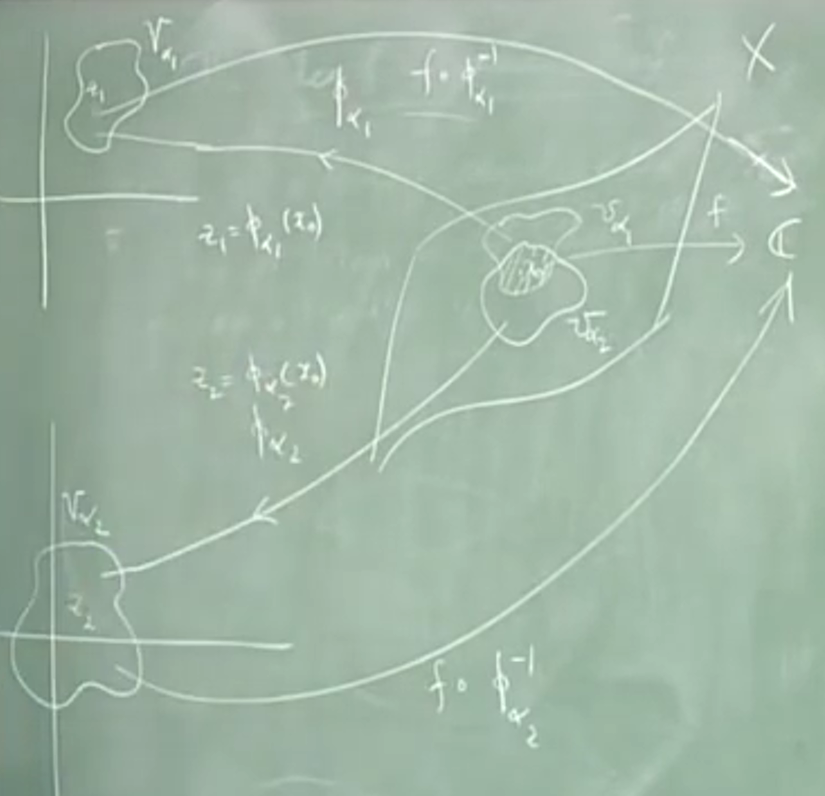 V_{α_1}
X
z_1
φ_{α_1}
f∘φ_{α_1}^{-1}
z_1 = φ_{α_1}(x_0)
U_{α_1}
f
ℂ
x_0
U_{α_2}
z_2 = φ_{α_2}(x_0)
φ_{α_2}
V_{α_2}
z_2
f∘φ_{α_2}^{-1}